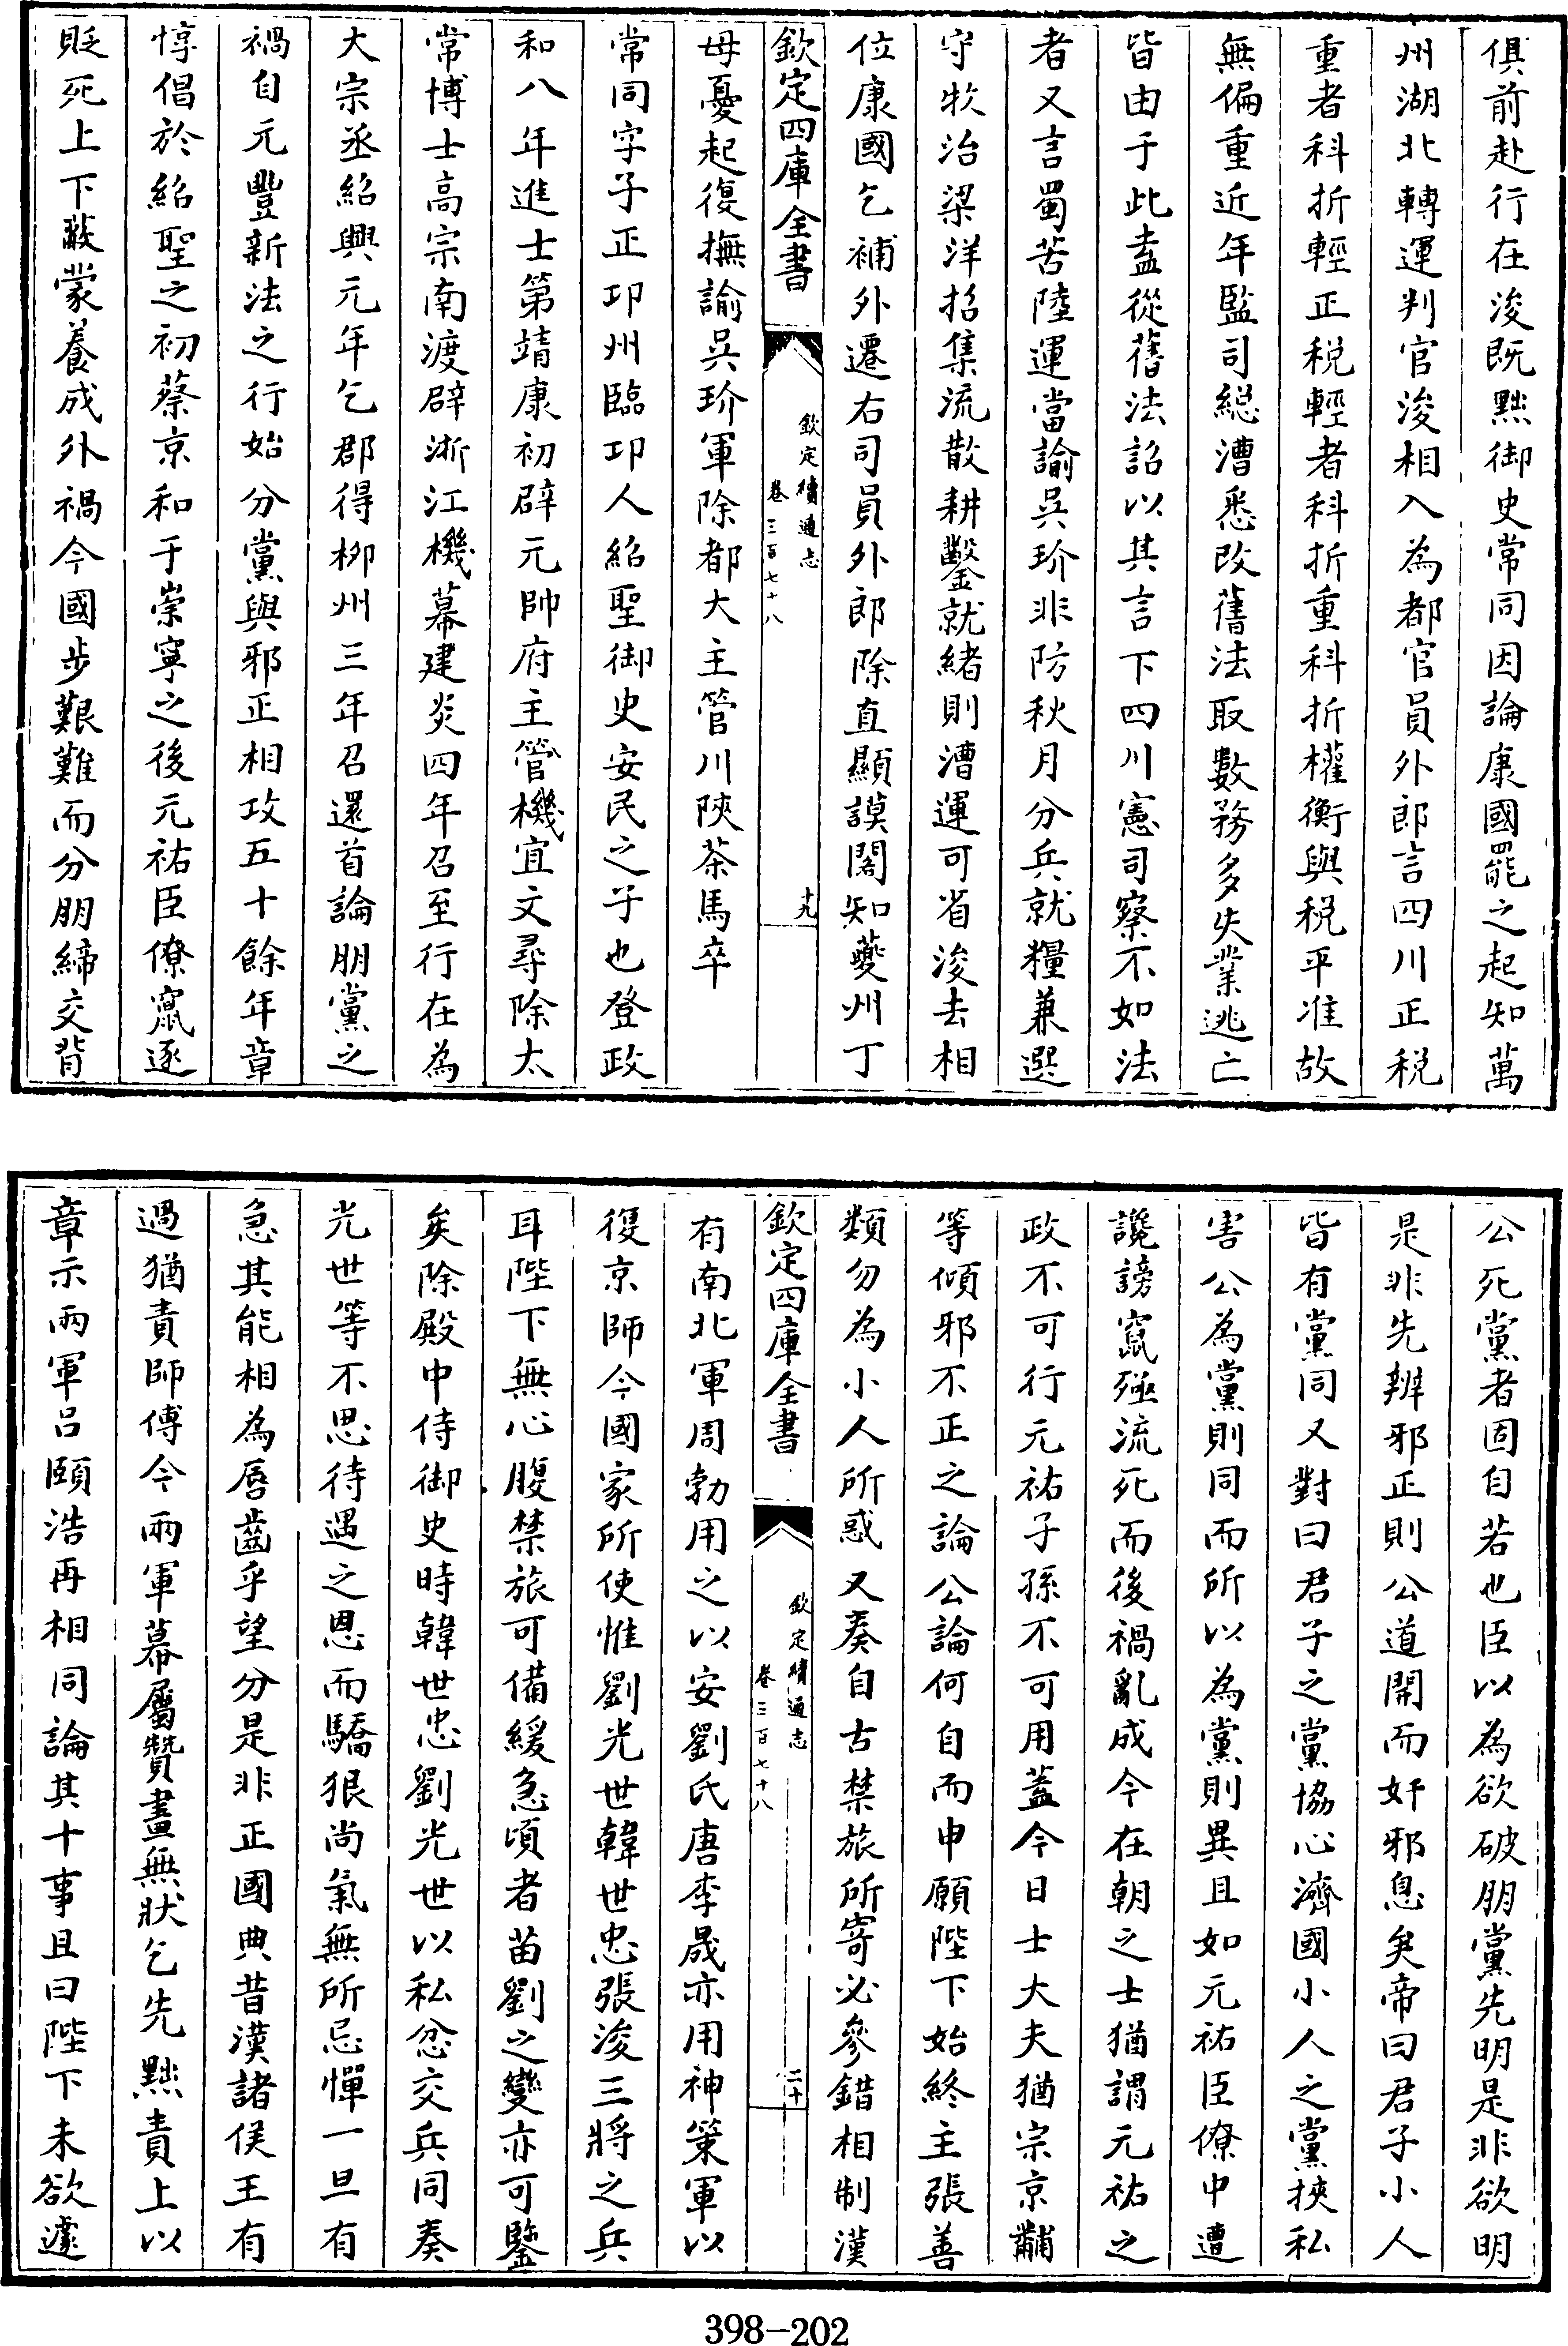 俱前赴行在浚既黜御史常同因論康國罷之起知萬
州湖北轉運判官浚相入為都官員外郎言四川正税
重者科折輕正税輕者科折重科折權衡與税平准故
無偏重近年監司緫漕悉改舊法取數務多失業逃亡
皆由于此盍從舊法詔以其言下四川憲司察不如法
者又言蜀苦陸運當諭吳玠非防秋月分兵就糧兼選
守牧治梁洋招集流散耕鑿就緒則漕運可省浚去相
位康國乞補外遷右司員外郎除直顯謨閣知夔州丁
欽定四庫全書
欽定續通志
卷三百七十八
十九
母憂起復撫諭吳玠軍除都大主管川陝茶馬卒
常同字子正卭州臨卭人紹聖御史安民之子也登政
和八年進士第靖康初辟元帥府主管機宜文尋除太
常博士高宗南渡辟浙江機幕建炎四年召至行在為
大宗丞紹興元年乞郡得柳州三年召還首論朋黨之
禍自元豐新法之行始分黨與邪正相攻五十餘年章
惇倡於紹聖之初蔡京和于崇寧之後元祐臣僚竄逐
貶死上下蔽蒙養成外禍今國步艱難而分朋締交背
公死黨者固自若也臣以為欲破朋黨先明是非欲明
是非先辨邪正則公道開而奸邪息矣帝曰君子小人
皆有黨同又對曰君子之黨協心濟國小人之黨挾私
害公為黨則同而所以為黨則異且如元祐臣僚中遭
讒謗竄殛流死而後禍亂成今在朝之士猶謂元祐之
政不可行元祐子孫不可用蓋今日士大夫猶宗京黼
等傾邪不正之論公論何自而申願陛下始終主張善
類勿為小人所惑又奏自古禁旅所寄必參錯相制漢
欽定四庫全書
欽定續通志
卷三百七十八
二十
有南北軍周勃用之以安劉氏唐李晟亦用神策軍以
復京師今國家所使惟劉光世韓世忠張浚三將之兵
耳陛下無心腹禁旅可備緩急頃者苗劉之變亦可鑒
矣除殿中侍御史時韓世忠劉光世以私忿交兵同奏
光世等不思待遇之恩而驕狠尚氣無所忌憚一旦有
急其能相為唇齒乎望分是非正國典昔漢諸侯王有
過猶責師傅今兩軍幕屬贊畫無狀乞先黜責上以
章示兩軍吕頤浩再相同論其十事且曰陛下未欲遽
398-202